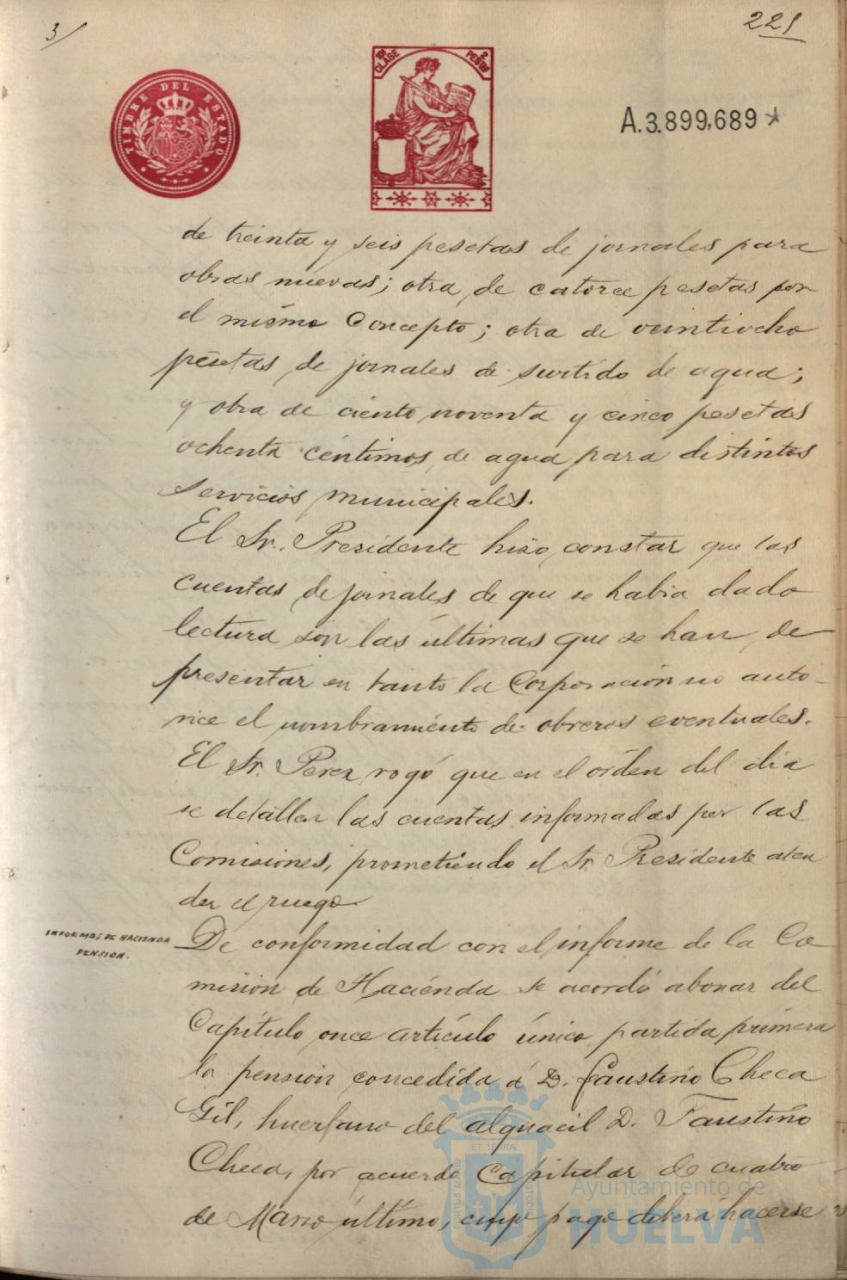 3/
221
TIMBRE DEL ESTADO
CLASE 2 PESETAS
A.3.899,689
de treinta y seis pesetas de jornales para
obras nuevas; otra de catorce pesetas por
el mismo Concepto; otra de veintiocho
pesetas de jornales de surtido de agua;
y otra de ciento noventa y cinco pesetas
ochenta céntimos de agua para distintos
servicios municipales.
El Sr. Presidente hizo constar que las
cuentas de jornales de que se habia dado
lectura son las últimas que se han de
presentar en tanto la Corporación no auto-
rice el nombramiento de obreros eventuales.
El Sr. Perez rogó que en el órden del dia
se detallen las cuentas informadas por las
Comisiones, prometiendo el Sr. Presidente aten
der el ruego.
INFORMES DE HACIENDA
PENSION.
De conformidad con el informe de la Co
misión de Hacienda se acordó abonar del
Capítulo once artículo único, partida primera
la pensión concedida á D. Faustino Checa
Gil, huerfano del alguacil D. Faustino
Checa, por acuerdo Capitular de cuatro
de Marzo último, cuyo pago deberá hacerse
Ayuntamiento de
HUELVA